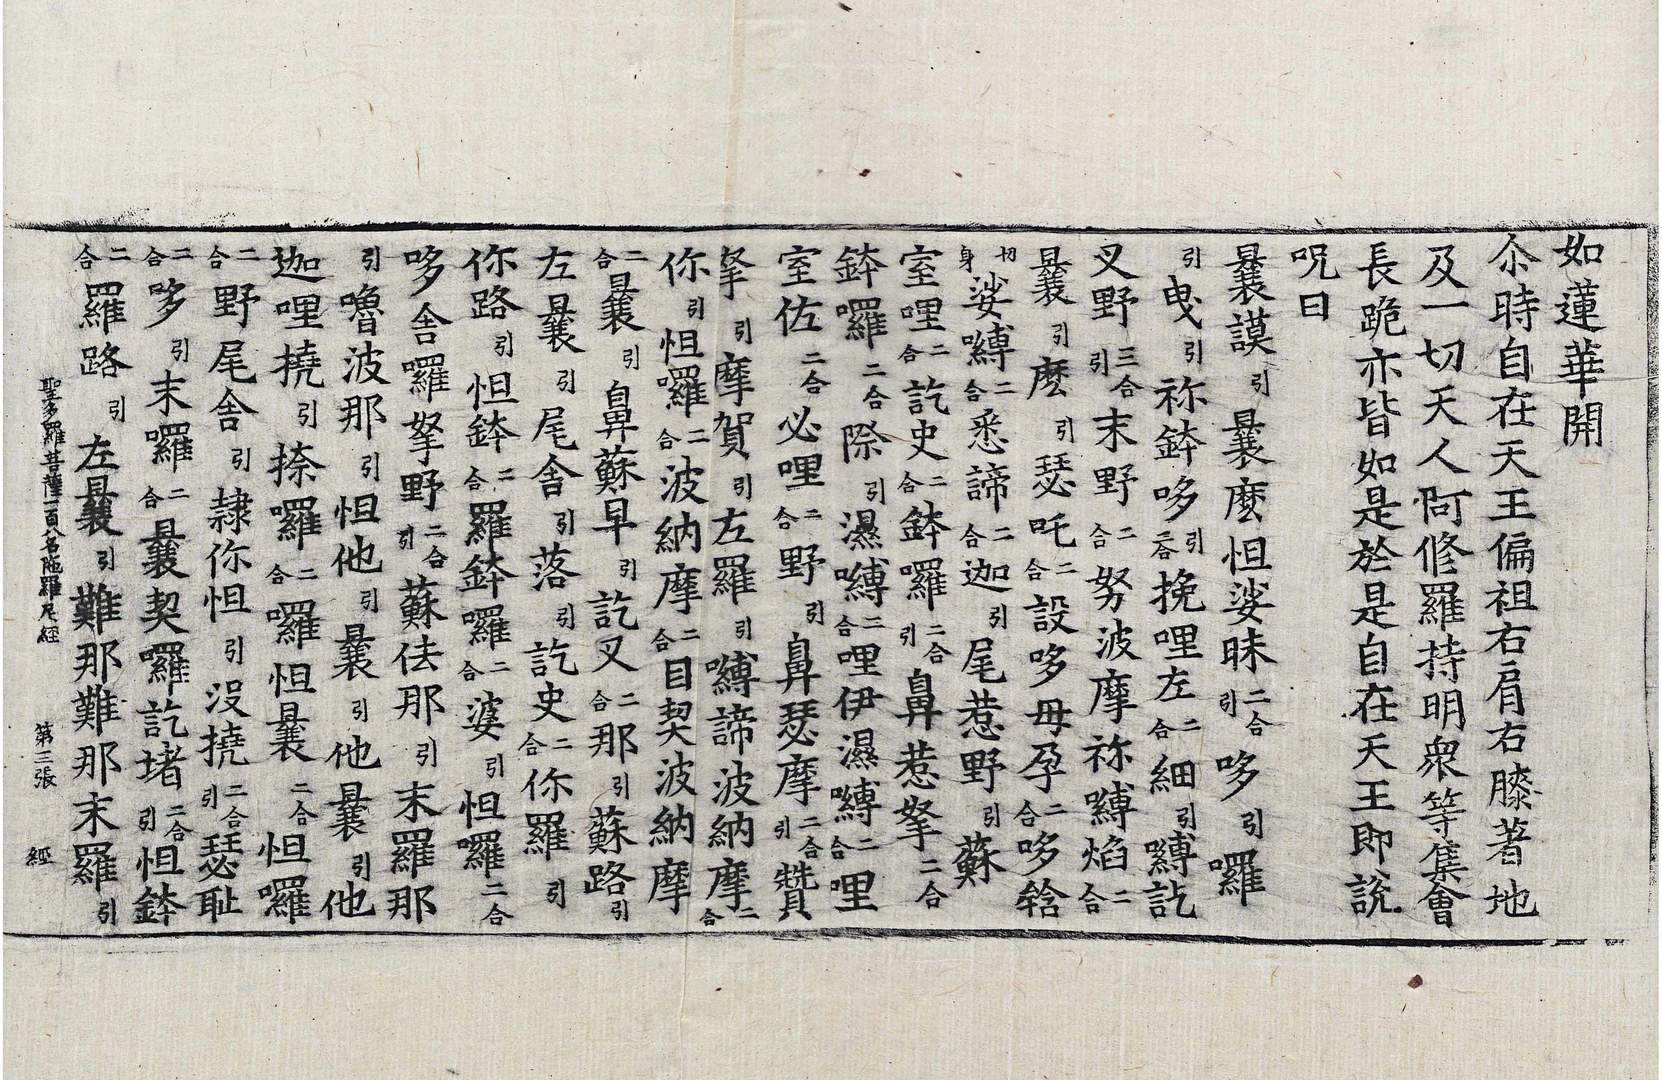 如蓮華開
尒時自在天王偏袒右肩右膝著地
及一切天人阿修羅持明衆等集會
長跪亦皆如是於是自在天王即說
呪曰
曩謨引曩麽怛娑昧二合引哆引囉
引曳引祢鉢哆引二合挽哩左二合細引嚩訖
叉野三合引末野二合努波摩祢嚩焰二合
曩引麽引瑟吒二合設哆母孕二合哆
切身娑嚩二合悉諦二合迦引尾惹野引蘇
室哩二合訖史二合鉢囉二合引鼻惹拏二合
鉢囉二合際引濕嚩二合哩伊濕嚩二合哩
室佐二合必哩二合野引鼻瑟摩二合引贊
拏引摩賀引左羅引嚩諦波納摩二合
你引怛羅二合波納摩二合目契波納摩
二合曩引鼻蘇早引訖叉二合那引蘇路引
左曩引尾舍引落引訖史二合你羅引
你路引怛鉢二合羅鉢囉二合婆引怛囉二合
哆舍囉拏野二合引蘇佉那引末羅那
引嚕波那引怛他引曩引他曩引他
迦哩撓引捺囉二合囉怛曩二合怛囉
二合野尾舍引隷你怛引沒撓二合引瑟耻
二合哆引末囉二合曩契囉訖堵二合引怛鉢
二合羅路引左曩引難那難那末羅引
聖多羅菩薩一百八名陁羅尼經 第三張 經